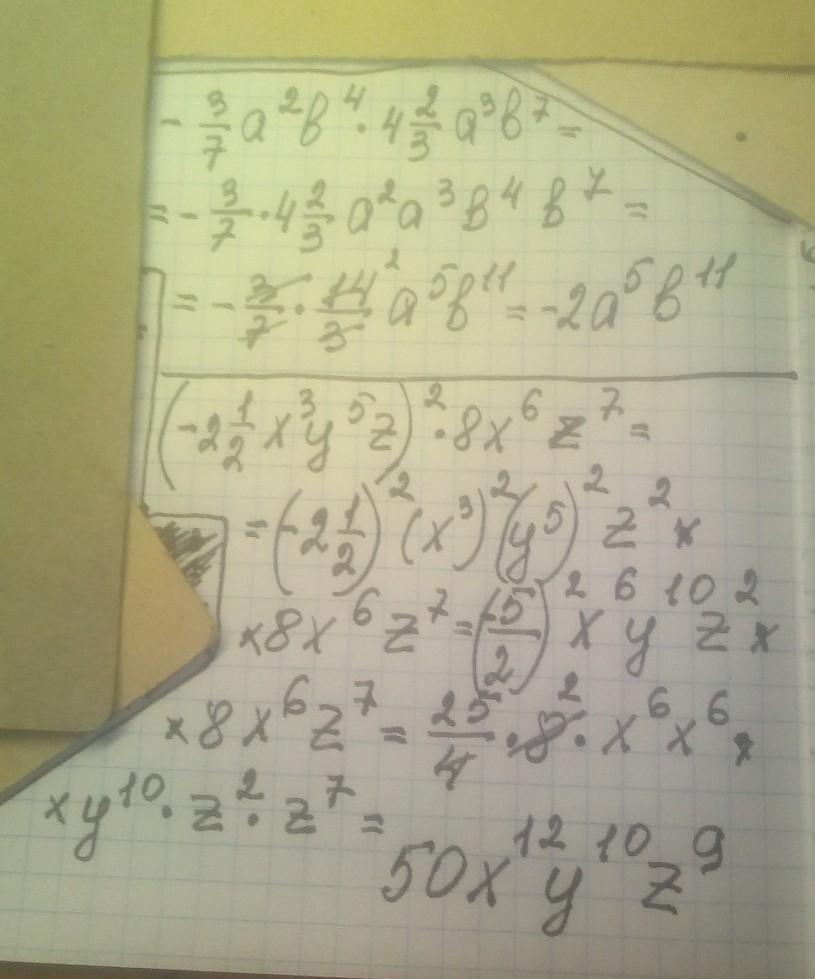 - 3/7 a²b⁴ · 4 2/3 a³b⁷ =
= - 3/7 · 4 2/3 a²a³b⁴ b⁷ =
= - 3/7 · 14/3 ² a⁵b¹¹ = -2a⁵b¹¹
(-2 1/2 x³y⁵z)² · 8x⁶z⁷ =
= (-2 1/2)² (x³)² (y⁵)² z² ×
×8x⁶z⁷ = (-5/2)² x⁶ y¹⁰ z² ×
×8x⁶z⁷ = 25/4 · 8² · x⁶x⁶ ×
×y¹⁰ · z² · z⁷ =
50x¹²y¹⁰z⁹